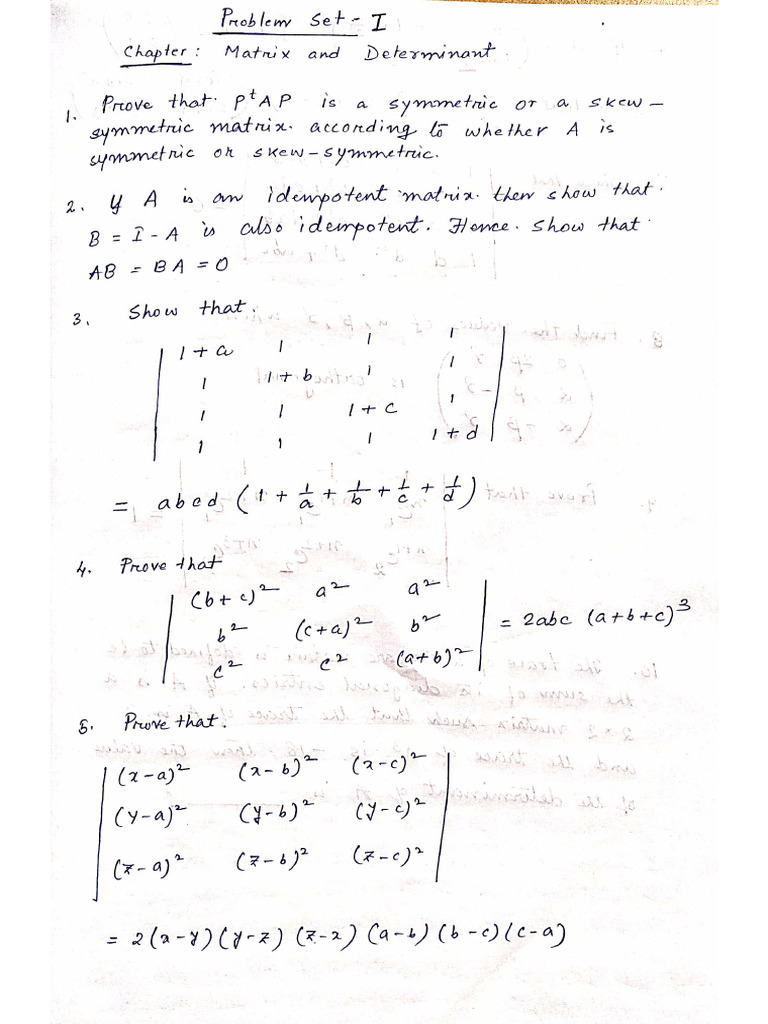 Problem Set - I
Chapter: Matrix and Determinant.
1. Prove that PᵗAP is a symmetric or a skew-
symmetric matrix according to whether A is
symmetric or skew-symmetric.
2. If A is an idempotent matrix. then show that.
B = I - A is also idempotent. Hence. show that
AB = BA = 0
3. Show that.
| 1+a 1 1 1 |
| 1 1+b 1 1 |
| 1 1 1+c 1 |
| 1 1 1 1+d |
= abcd (1 + 1/a + 1/b + 1/c + 1/d)
4. Prove that
| (b+c)² a² a² |
| b² (c+a)² b² |
| c² c² (a+b)² | = 2abc (a+b+c)³
5. Prove that.
| (x-a)² (x-b)² (x-c)² |
| (y-a)² (y-b)² (y-c)² |
| (z-a)² (z-b)² (z-c)² |
= 2(x-y)(y-z)(z-x)(a-b)(b-c)(c-a)